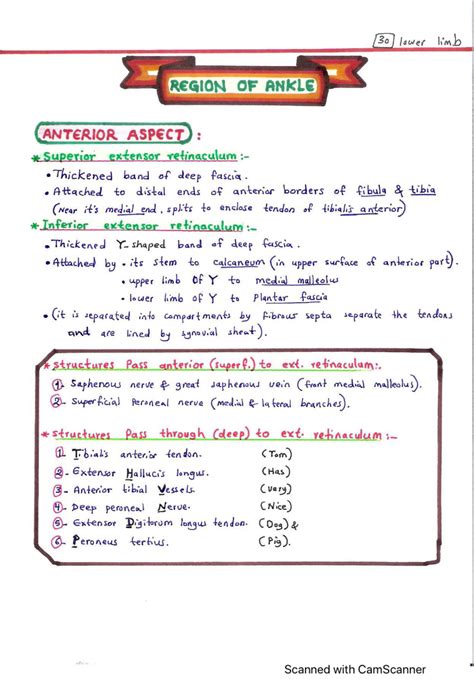 30 lower limb
REGION OF ANKLE
ANTERIOR ASPECT :
* Superior extensor retinaculum :-
• Thickened band of deep fascia.
• Attached to distal ends of anterior borders of fibula & tibia
(Near it's medial end, splits to enclose tendon of tibialis anterior)
* Inferior extensor retinaculum :-
• Thickened Y-shaped band of deep fascia.
• Attached by • its stem to calcaneum (in upper surface of anterior part).
• upper limb OF Y to medial malleolus
• lower limb of Y to Plantar fascia
• (it is separated into compartments by fibrous septa separate the tendons
and are lined by synovial sheat).
* structures Pass anterior (superf.) to ext. retinaculum:.
1- Saphenous nerve & great saphenous vein (front medial malleolus).
2- Superficial Peroneal nerve (medial & lateral branches).
* structures Pass through (deep) to ext. retinaculum :-
1- Tibialis anterior tendon. (Tom)
2- Extensor Hallucis longus. (Has)
3- Anterior tibial Vessels. (Very)
4- Deep peroneal Nerve. (Nice)
5- Extensor Digitorum longus tendon. (Dog) &
6- Peroneus tertius. (Pig).
Scanned with CamScanner